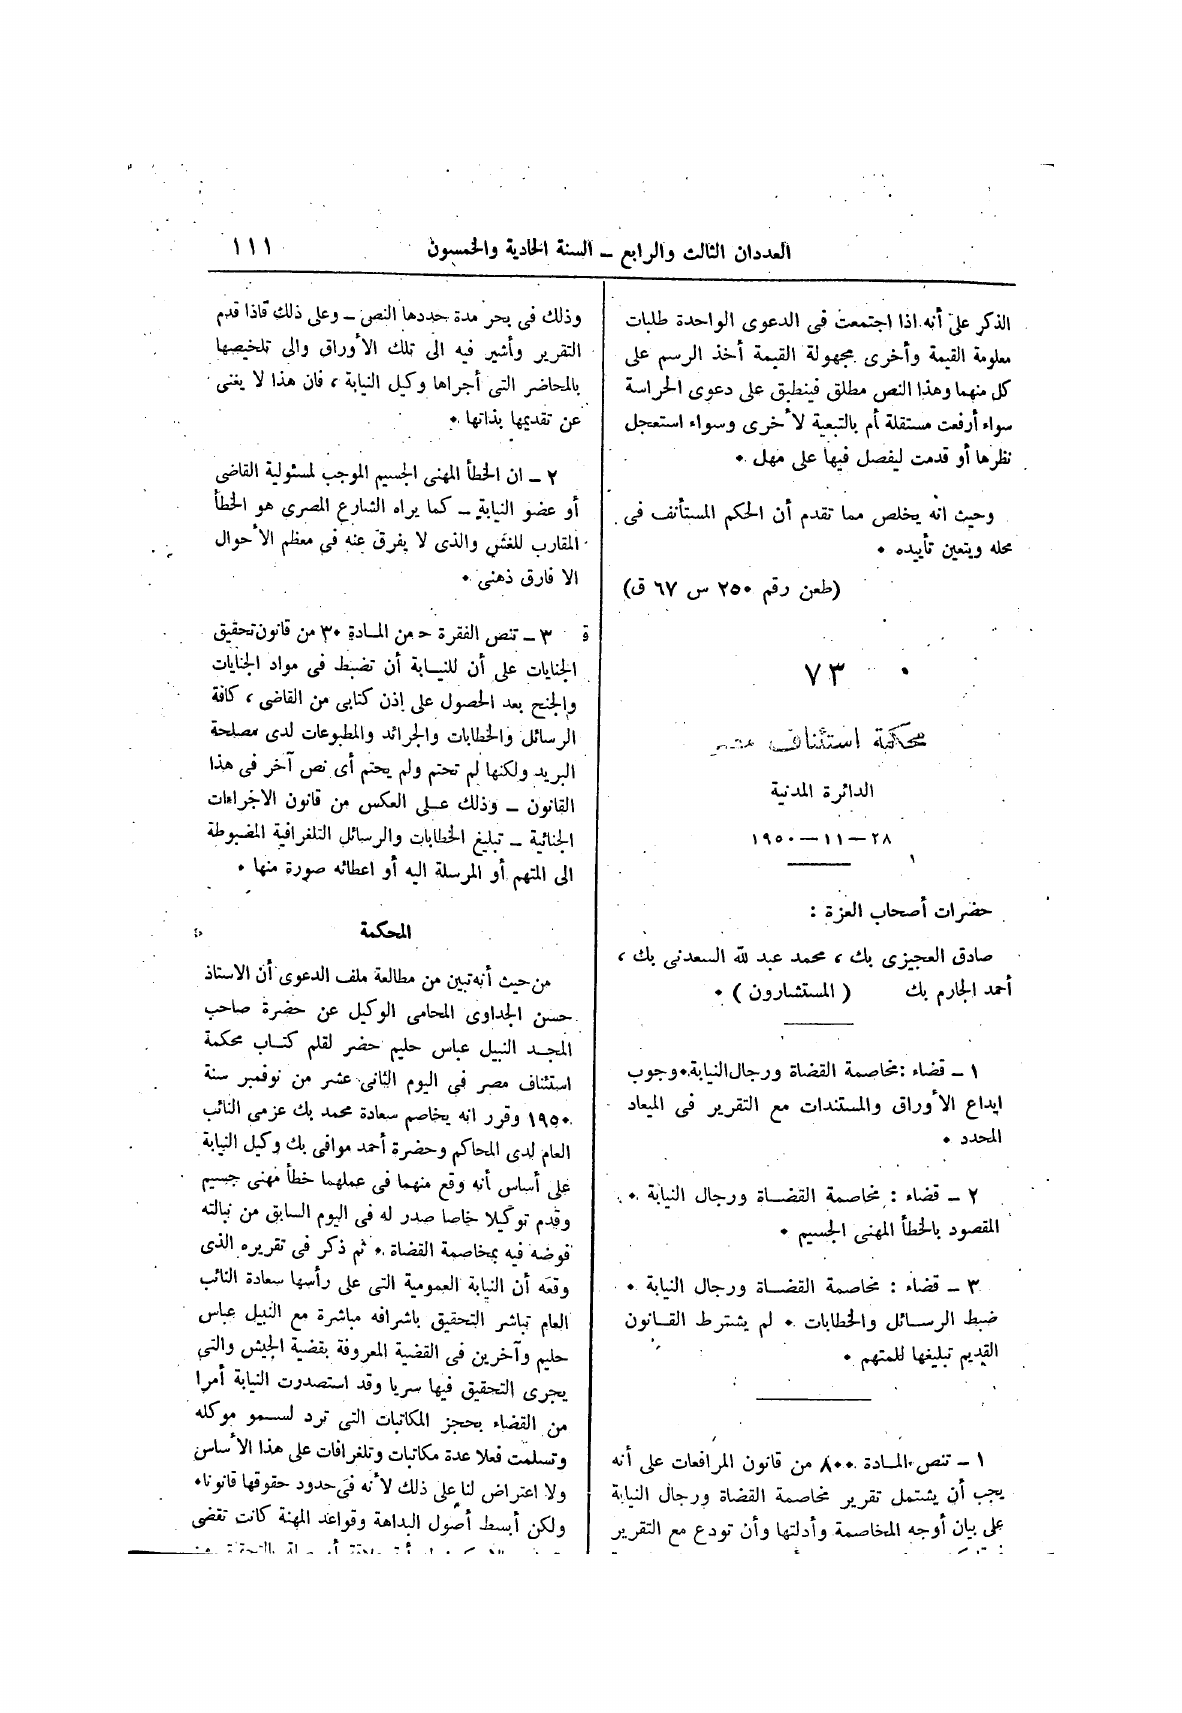 العددان الثالث والرابع – السنة الحادية والخمسون
١١١
الذكر على أنه اذا اجتمعت فى الدعوى الواحدة طلبات
معلومة القيمة وأخرى مجهولة القيمة أخذ الرسم على
كل منهما وهذا النص مطلق فينطبق على دعوى الحراسة
سواء أرفعت مستقلة أم بالتبعية لأخرى وسواء استعجل
نظرها أو قدمت ليفصل فيها على مهل ٠
وحيث انه يخلص مما تقدم أن الحكم المستأنف فى
محله ويتعين تأييده ٠
(طعن رقم ٢٥٠ س ٦٧ ق)
٧٣
محكمة استئناف مصر
الدائرة المدنية
٢٨ – ١١ – ١٩٥٠
حضرات أصحاب العزة :
صادق العجيزى بك ، محمد عبد لله السعدنى بك ،
أحمد الجارم بك ( المستشارون ) ٠
١ – قضاء : مخاصمة القضاة ورجال النيابة٠ وجوب
ايداع الأوراق والمستندات مع التقرير فى الميعاد
المحدد ٠
٢ – قضاء : مخاصمة القضاة ورجال النيابة ٠
المقصود بالخطأ المهنى الجسيم ٠
٣ – قضاء : مخاصمة القضاة ورجال النيابة ٠
ضبط الرسائل والخطابات ٠ لم يشترط القانون
القديم تبليغها للمتهم ٠
١ – تنص المادة ٨٠٠ من قانون المرافعات على أنه
يجب أن يشتمل تقرير مخاصمة القضاة ورجال النيابة
على بيان أوجه المخاصمة وأدلتها وأن تودع مع التقرير
وذلك فى بحر مدة حددها النص – وعلى ذلك فاذا قدم
التقرير وأشير فيه الى تلك الأوراق والى تلخيصها
بالمحاضر التى أجراها وكيل النيابة ، فان هذا لا يغنى
عن تقديمها بذاتها ٠
٢ – ان الخطأ المهنى الجسيم الموجب لمسئولية القاضى
أو عضو النيابة – كما يراه الشارع المصرى هو الخطأ
المقارب للغش والذى لا يفرق عنه فى معظم الأحوال
الا فارق ذهنى ٠
٣ – تنص الفقرة ح من المادة ٣٠ من قانون تحقيق
الجنايات على أن للنيابة أن تضبط فى مواد الجنايات
والجنح بعد الحصول على إذن كتابى من القاضى ، كافة
الرسائل والخطابات والجرائد والمطبوعات لدى مصلحة
البريد ولكنها لم تحتم ولم يحتم أى نص آخر فى هذا
القانون – وذلك على العكس من قانون الاجراءات
الجنائية – تبليغ الخطابات والرسائل التلغرافية المضبوطة
الى المتهم أو المرسلة اليه أو اعطائه صورة منها ٠
المحكمة
من حيث أنه تبين من مطالعة ملف الدعوى أن الاستاذ
حسن الجداوى المحامى الوكيل عن حضرة صاحب
المجد النبيل عباس حليم حضر لقلم كتاب محكمة
استئناف مصر فى اليوم الثانى عشر من نوفمبر سنة
١٩٥٠ وقرر انه يخاصم سعادة محمد بك عزمى النائب
العام لدى المحاكم وحضرة أحمد موافى بك وكيل النيابة
على أساس أنه وقع منهما فى عملهما خطأ مهنى جسيم
وقدم توكيلا خاصا صدر له فى اليوم السابق من نبالته
فوضه فيه بمخاصمة القضاة ٠ ثم ذكر فى تقريره الذى
وقعه أن النيابة العمومية التى على رأسها سعادة النائب
العام تباشر التحقيق باشرافه مباشرة مع النبيل عباس
حليم وآخرين فى القضية المعروفة بقضية الجيش والتى
يجرى التحقيق فيها سريا وقد استصدرت النيابة أمرا
من القضاء بحجز المكاتبات التى ترد لسمو موكله
وتسلمت فعلا عدة مكاتبات وتلغرافات على هذا الأساس
ولا اعتراض لنا على ذلك لأنه فى حدود حقوقها قانونا٠
ولكن أبسط أصول البداهة وقواعد المهنة كانت تقضى